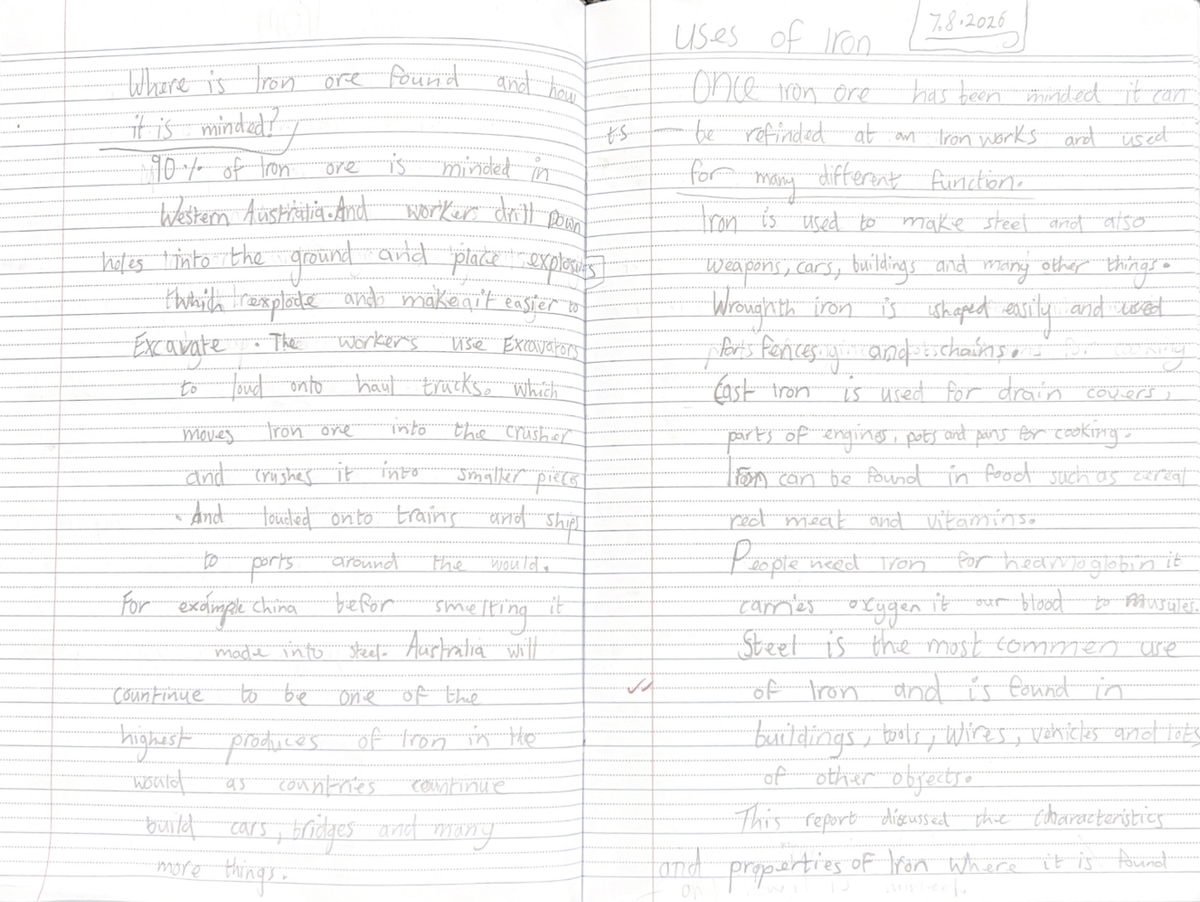 Where is Iron ore found and how
it is minded?
90% of Iron ore is minded in
Western Australia. And workers drill down
holes into the ground and place explosives
which explode and make it easier to
Excavate. The workers use Excavators
to loud onto haul trucks. which
moves Iron ore into the crusher
and crushes it into smaller pieces
. And louded onto trains and ships
to ports around the would.
For example china befor smelting it
made into steel. Australia will
countinue to be one of the
highest produces of Iron in the
would as countries countinue
build cars, bridges and many
more things.
Uses of Iron
7.8.2026
Once Iron ore has been minded it can
ts be refinded at an Iron works and used
for many different function.
Iron is used to make steel and also
weapons, cars, buildings and many other things.
Wroughth iron is shaped easily and used
for fences and chains.
Cast Iron is used for drain covers,
parts of engines, pots and pans for cooking.
Iron can be found in food such as cereal
red meat and vitamins.
People need Iron for heamoglobin it
carries oxygen it our blood to musules.
Steel is the most commen use
of Iron and is found in
buildings, tools, wires, vehicles and lots
of other objects.
This report discussed the characteristics
and properties of Iron where it is found